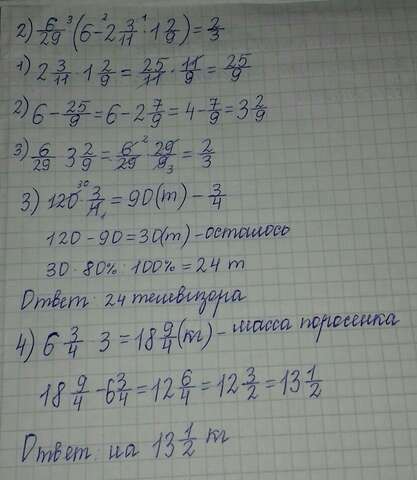 2) 6/29 ·³ (6 -² 2 3/11 ·¹ 1 2/9) = 2/3
1) 2 3/11 · 1 2/9 = 25/11 · 11/9 = 25/9
2) 6 - 25/9 = 6 - 2 7/9 = 4 - 7/9 = 3 2/9
3) 6/29 · 3 2/9 = 6²/29 · 29/9₃ = 2/3
3) 120³⁰ · 3/4₁ = 90(т) - 3/4
120 - 90 = 30(т) - осталось
30 · 80% : 100% = 24 т
Ответ: 24 телевизора
4) 6 3/4 · 3 = 18 9/4 (кг) - масса поросенка
18 9/4 - 6 3/4 = 12 6/4 = 12 3/2 = 13 1/2
Ответ: на 13 1/2 кг